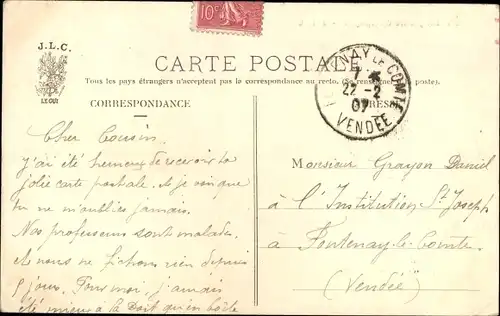 10c
J.L.C.
LE GUI
CARTE POSTALE
Tous les pays étrangers n'acceptent pas la correspondance au recto. (Se renseigner à la poste).
CORRESPONDANCE
ADRESSE
FONTENAY LE COMTE
22-2
07
VENDÉE
Cher Cousin,
J'ai été heureux de recevoir ta
jolie carte postale. et je vois que
tu ne m'oublies jamais.
Nos professeurs sont malades
et nous ne fichons rien depuis
jours. Pour moi j'aimais
été mieux à la qu'en boîte
Monsieur Grayon Daniel
à l'Institution St Joseph
à Fontenay-le-Comte
(Vendée)